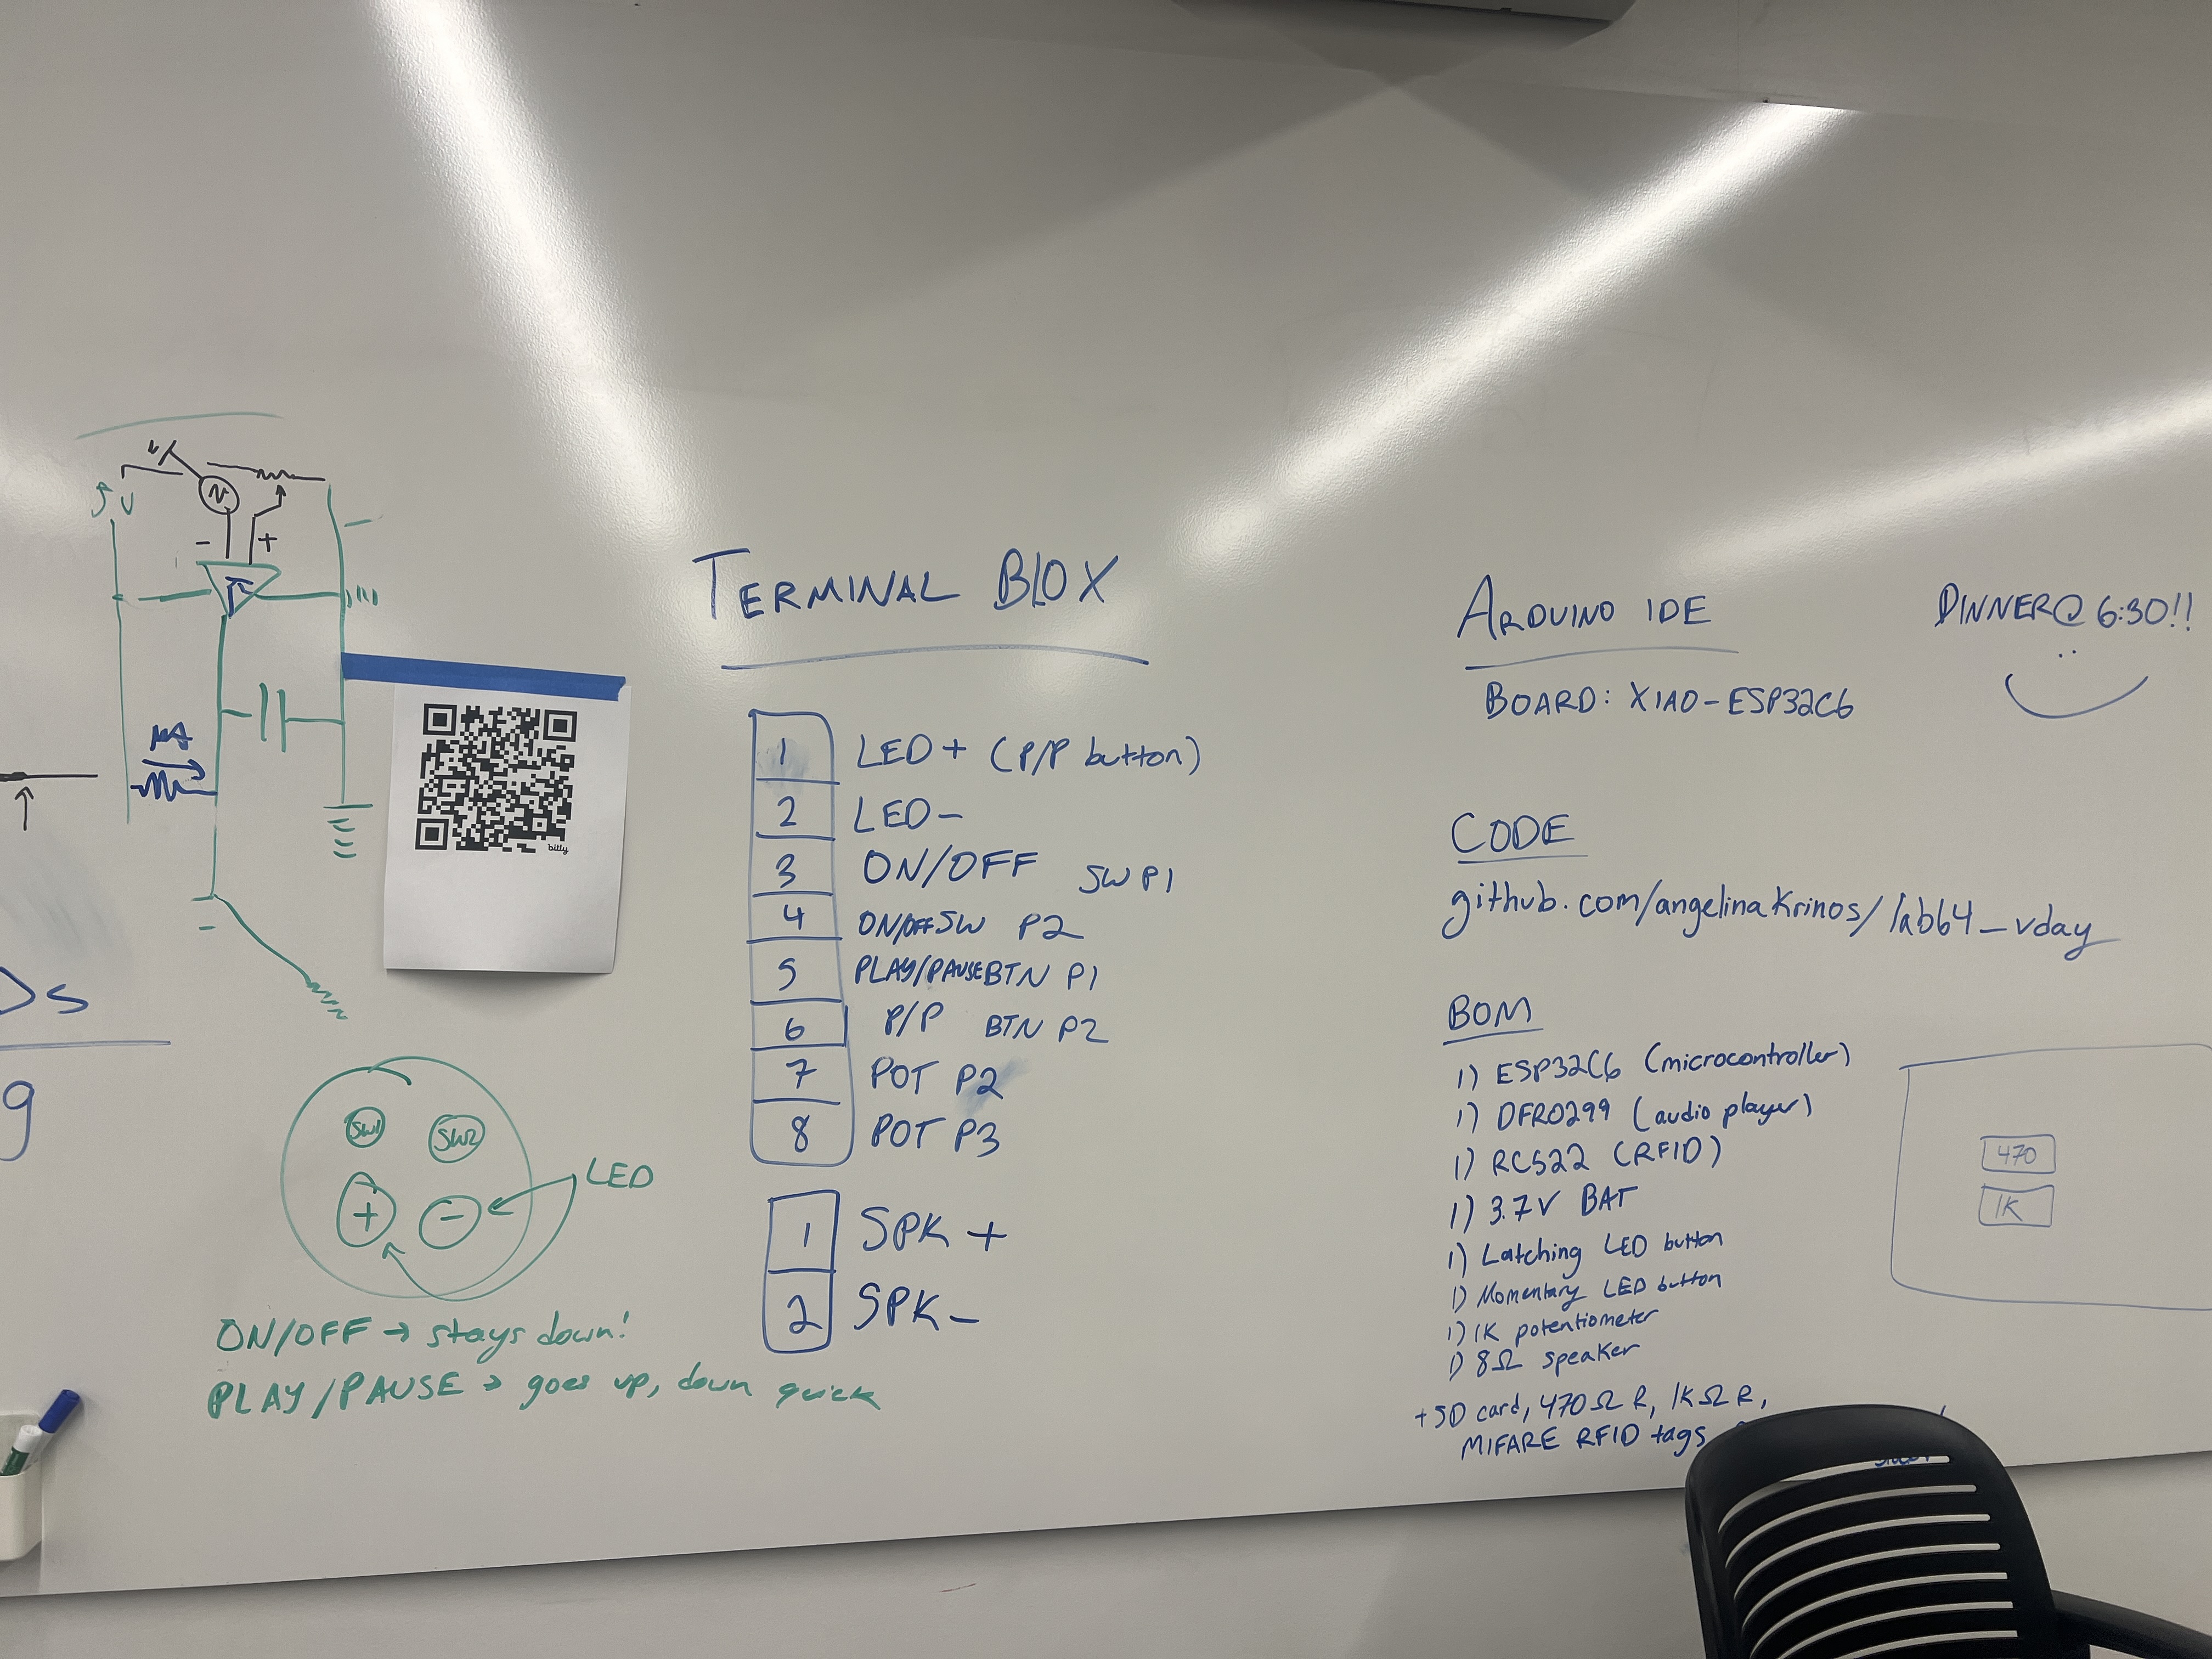 5V
-
+
μA
bitly
Ds
g
SW1
SW2
+
-
LED
ON/OFF → stays down!
PLAY/PAUSE → goes up, down quick
TERMINAL BLOX
1 LED + (P/P button)
2 LED -
3 ON/OFF SW P1
4 ON/OFF SW P2
5 PLAY/PAUSE BTN P1
6 P/P BTN P2
7 POT P2
8 POT P3
1 SPK +
2 SPK -
ARDUINO IDE
BOARD: XIAO-ESP32C6
DINNER@ 6:30!!
CODE
github.com/angelinakrinos/lab64_vday
BOM
1) ESP32C6 (microcontroller)
1) DFR0299 (audio player)
1) RC522 (RFID)
1) 3.7V BAT
1) Latching LED button
1) Momentary LED button
1) 1K potentiometer
1) 8Ω speaker
+ SD card, 470Ω R, 1KΩ R,
MIFARE RFID tags
470
1K